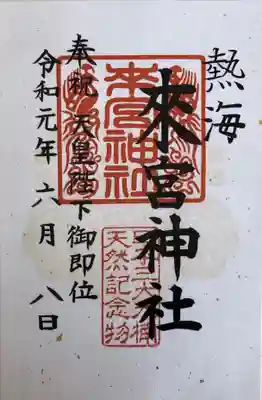 熱海
來宮神社
奉祝 天皇陛下御即位
令和元年 六月 八日
来宮神社
天然記念物